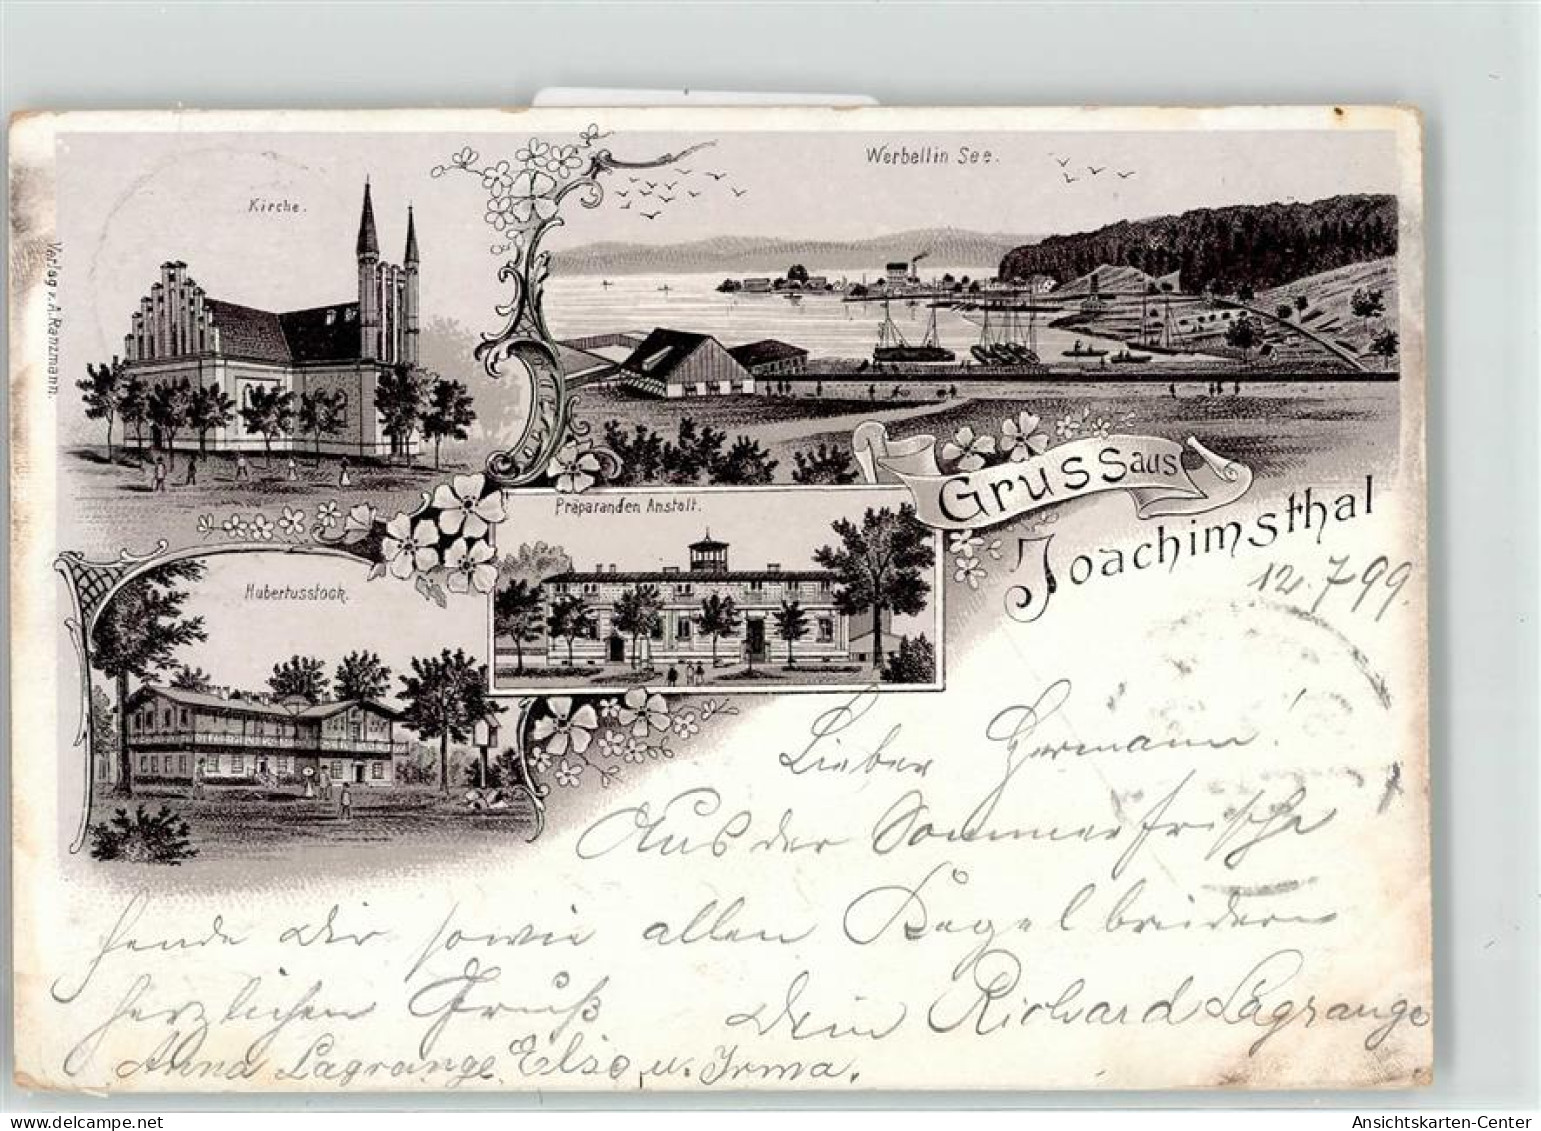 Kirche.
Werbellin See.
Verlag v. A. Ranzmann.
Präparanden Anstalt.
Gruss aus
Joachimsthal
12.7.99.
Hubertusstock.
Lieber Hermann!
Aus der Sommerfrische
sende dir sowie allen Kegelbrüdern
herzlichen Gruß Dein Richard Lagrange
Anna Lagrange, Else u. Irma.
Ansichtskarten-Center